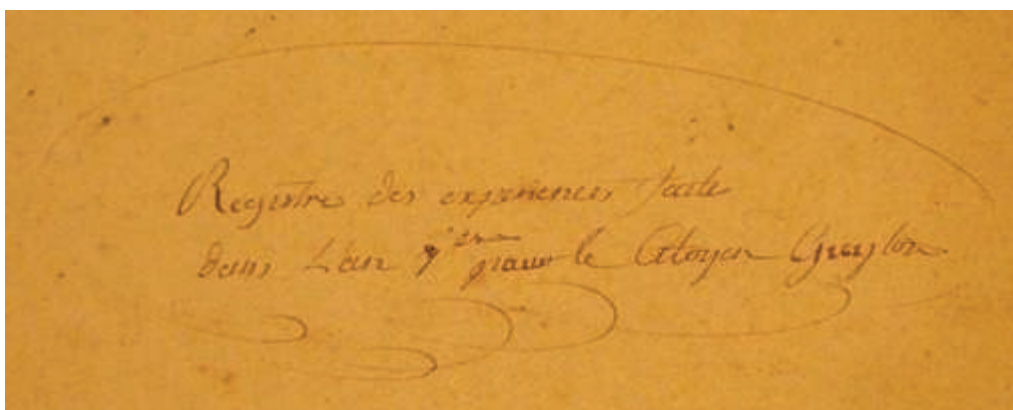 Registre des experiences faite
dans L'an 7ieme pour le Citoyen Guyton